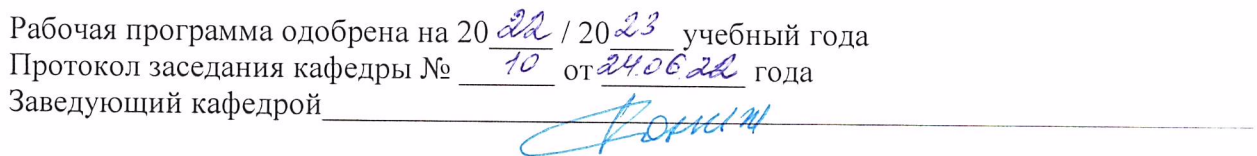 Рабочая программа одобрена на 20 22 / 20 23 учебный года
Протокол заседания кафедры № 10 от 24.06.22 года
Заведующий кафедрой